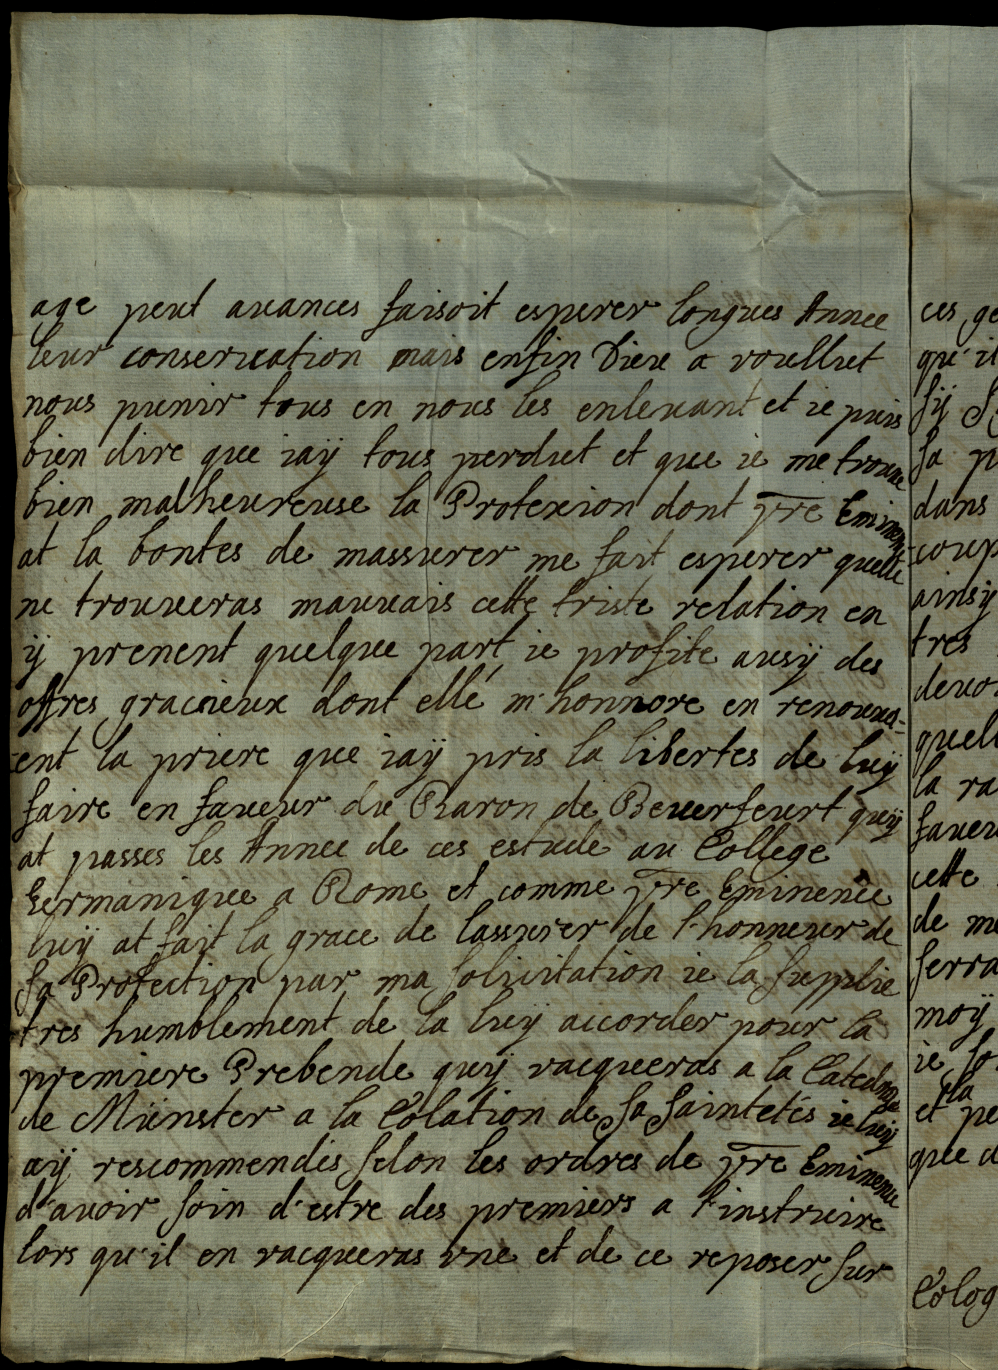 age peut auances faisoit esperer longues Annee
leur conseruation mais enfin Dieu a voullut
nous punir tous en nous les enleuant et ie puis
bien dire que iaÿ tous perdut et que ie me trouue
bien malheureuse la Protexion dont vre Eminence
at la bontes de massurer me fait esperer quelle
ne trouueras mauuais cette triste relation en
ÿ prenent quelque part, ie profite ausÿ des
offres gracieux dont elle m'honnore en renouuel-
-ent la priere que iaÿ pris la libertes de luÿ
faire en faueur du Baron de Beuerfeurt quÿ
at passes les Annee de ces estude au College
Germanique a Rome et comme vre Eminence
luÿ at fait la grace de lassurer de l'honneur de
sa Protection par ma solicitation ie la supplie
tres humblement de la luÿ accorder pour la
premiere Prebende quÿ vacqueras a la Catedrale
de Münster a la Colation de sa saintetés ie luÿ
aÿ rescommendés selon les ordres de vre Eminence
d'auoir soin d'estre des premiers a l'instruire
lors qu'il en vacqueras vne et de ce reposer sur
ces ge
qu'il
sÿ
sa p
dans
coup
ainsÿ
tres
deuo
quel
la ra
faueu
cette
de me
serra
moÿ
ie so
la
et pe
que d
Colog